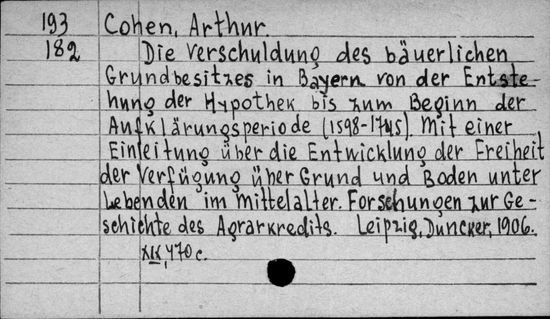 193 Cohen, Arthur.
182 Die Verschuldung des bäuerlichen
Grundbesitzes in Bayern von der Entste-
hung der Hypothek bis zum Beginn der
Aufklärungsperiode (1598-1745). Mit einer
Einleitung über die Entwicklung der Freiheit
der Verfügung über Grund und Boden unter
Lebenden im Mittelalter. Forschungen zur Ge-
schichte des Agrarkredits. Leipzig, Duncker, 1906.
XIX, 470 c.